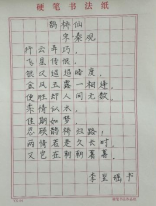 硬笔书法纸
鹊桥仙
宋秦观
纤云弄巧，
飞星传恨，
银汉迢迢暗度
金风玉露一相逢
便胜却人间无数
柔情似水，
佳期如梦
忍顾鹊桥归路，
两情若是久长时
又岂在朝朝暮暮。
李